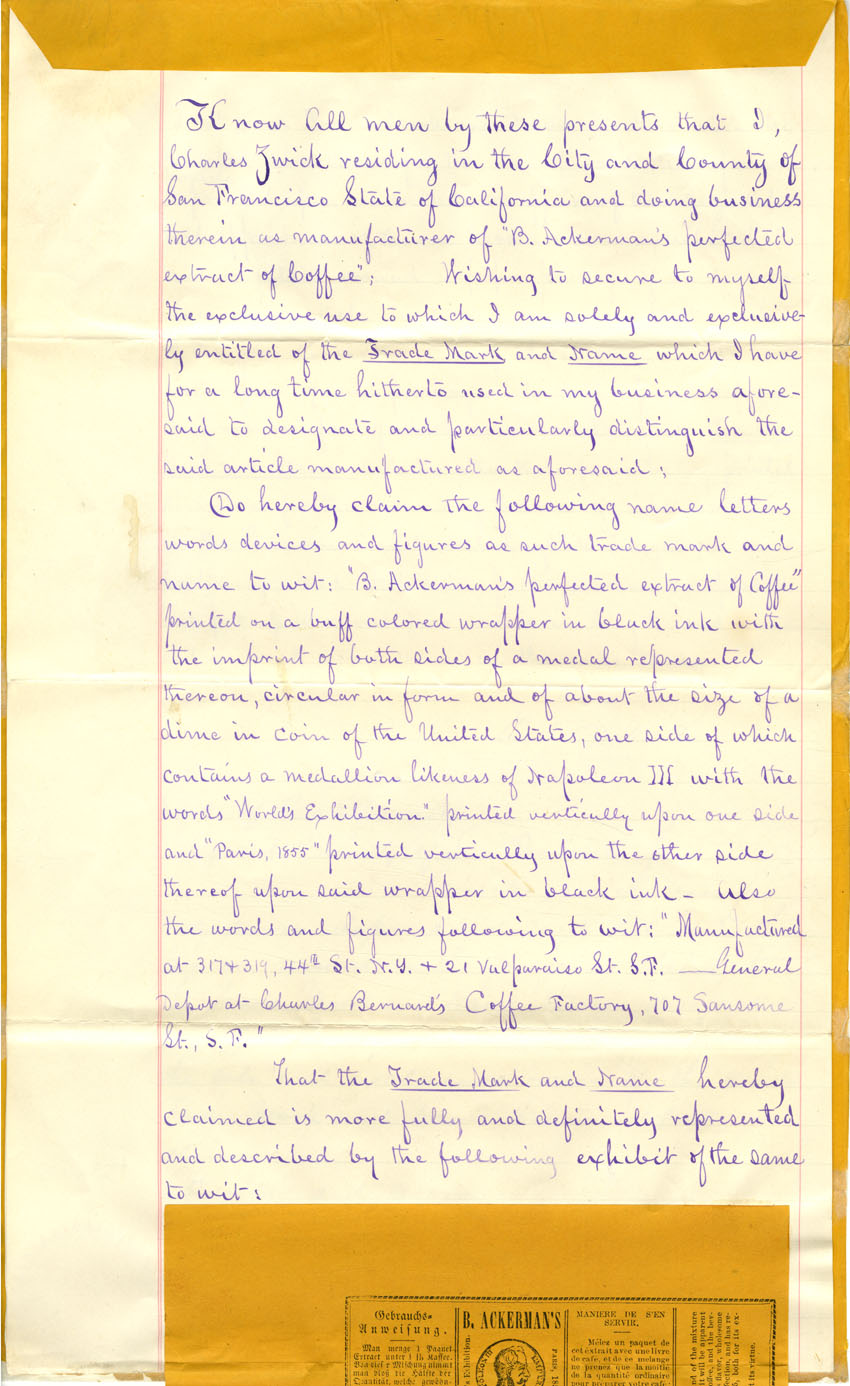 Know All men by these presents that I,
Charles Zwick residing in the City and County of
San Francisco State of California and doing business
therein as manufacturer of "B. Ackerman's perfected
extract of Coffee"; Wishing to secure to myself
the exclusive use to which I am solely and exclusive-
ly entitled of the Trade Mark and Name which I have
for a long time hitherto used in my business afore-
said to designate and particularly distinguish the
said article manufactured as aforesaid;
Do hereby claim the following name letters
words devices and figures as such trade mark and
name to wit: "B. Ackerman's perfected extract of Coffee"
printed on a buff colored wrapper in black ink with
the imprint of both sides of a medal represented
thereon, circular in form and of about the size of a
dime in coin of the United States, one side of which
contains a medallion likeness of Napoleon III with the
words "World's Exhibition." printed vertically upon one side
and "Paris, 1855" printed vertically upon the other side
thereof upon said wrapper in black ink - Also
the words and figures following to wit: "Manufactured
at 317 + 319, 44th St. N.Y. + 21 Valparaiso St. S.F. — General
Depot at Charles Bernard's Coffee Factory, 707 Sansome
St., S. F."
That the Trade Mark and Name hereby
claimed is more fully and definitely represented
and described by the following exhibit of the same
to wit:
Gebrauchs-
Anweisung.
Man menge 1 Paquet
Extract unter 1 ℔ Kaffee.
man bloß die Hälfte der
Quantität, welche
B. ACKERMAN'S
Exhibition.
PARIS, 18
MANIERE DE S'EN
SERVIR.
Mêlez un paquet de
cet extrait avec une livre
de café, et de ce mélange
ne prenez que la moitié
de la quantité ordinaire
pour préparer votre café
nd of the mixture
it will be apparent
offee, and the bev-
flavor, wholesome
fection, and has re-
, both for its ex-
its virtue.